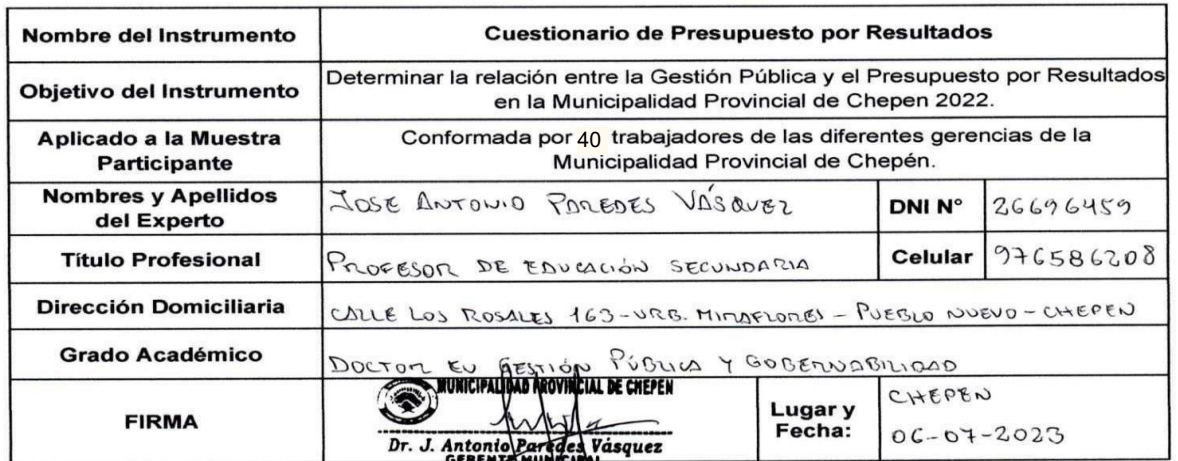 Nombre del Instrumento
Cuestionario de Presupuesto por Resultados
Objetivo del Instrumento
Determinar la relación entre la Gestión Pública y el Presupuesto por Resultados
en la Municipalidad Provincial de Chepen 2022.
Aplicado a la Muestra
Participante
Conformada por 40 trabajadores de las diferentes gerencias de la
Municipalidad Provincial de Chepén.
Nombres y Apellidos
del Experto
JOSE ANTONIO PAREDES VÁSQUEZ
DNI N°
26696459
Título Profesional
PROFESOR DE EDUCACIÓN SECUNDARIA
Celular
976586208
Dirección Domiciliaria
CALLE LOS ROSALES 163-URB. MIRAFLORES - PUEBLO NUEVO - CHEPEN
Grado Académico
DOCTOR EN GESTIÓN PÚBLICA Y GOBERNABILIDAD
FIRMA
MUNICIPALIDAD PROVINCIAL DE CHEPEN
Dr. J. Antonio Paredes Vásquez
GERENTE MUNICIPAL
Lugar y
Fecha:
CHEPEN
06-07-2023